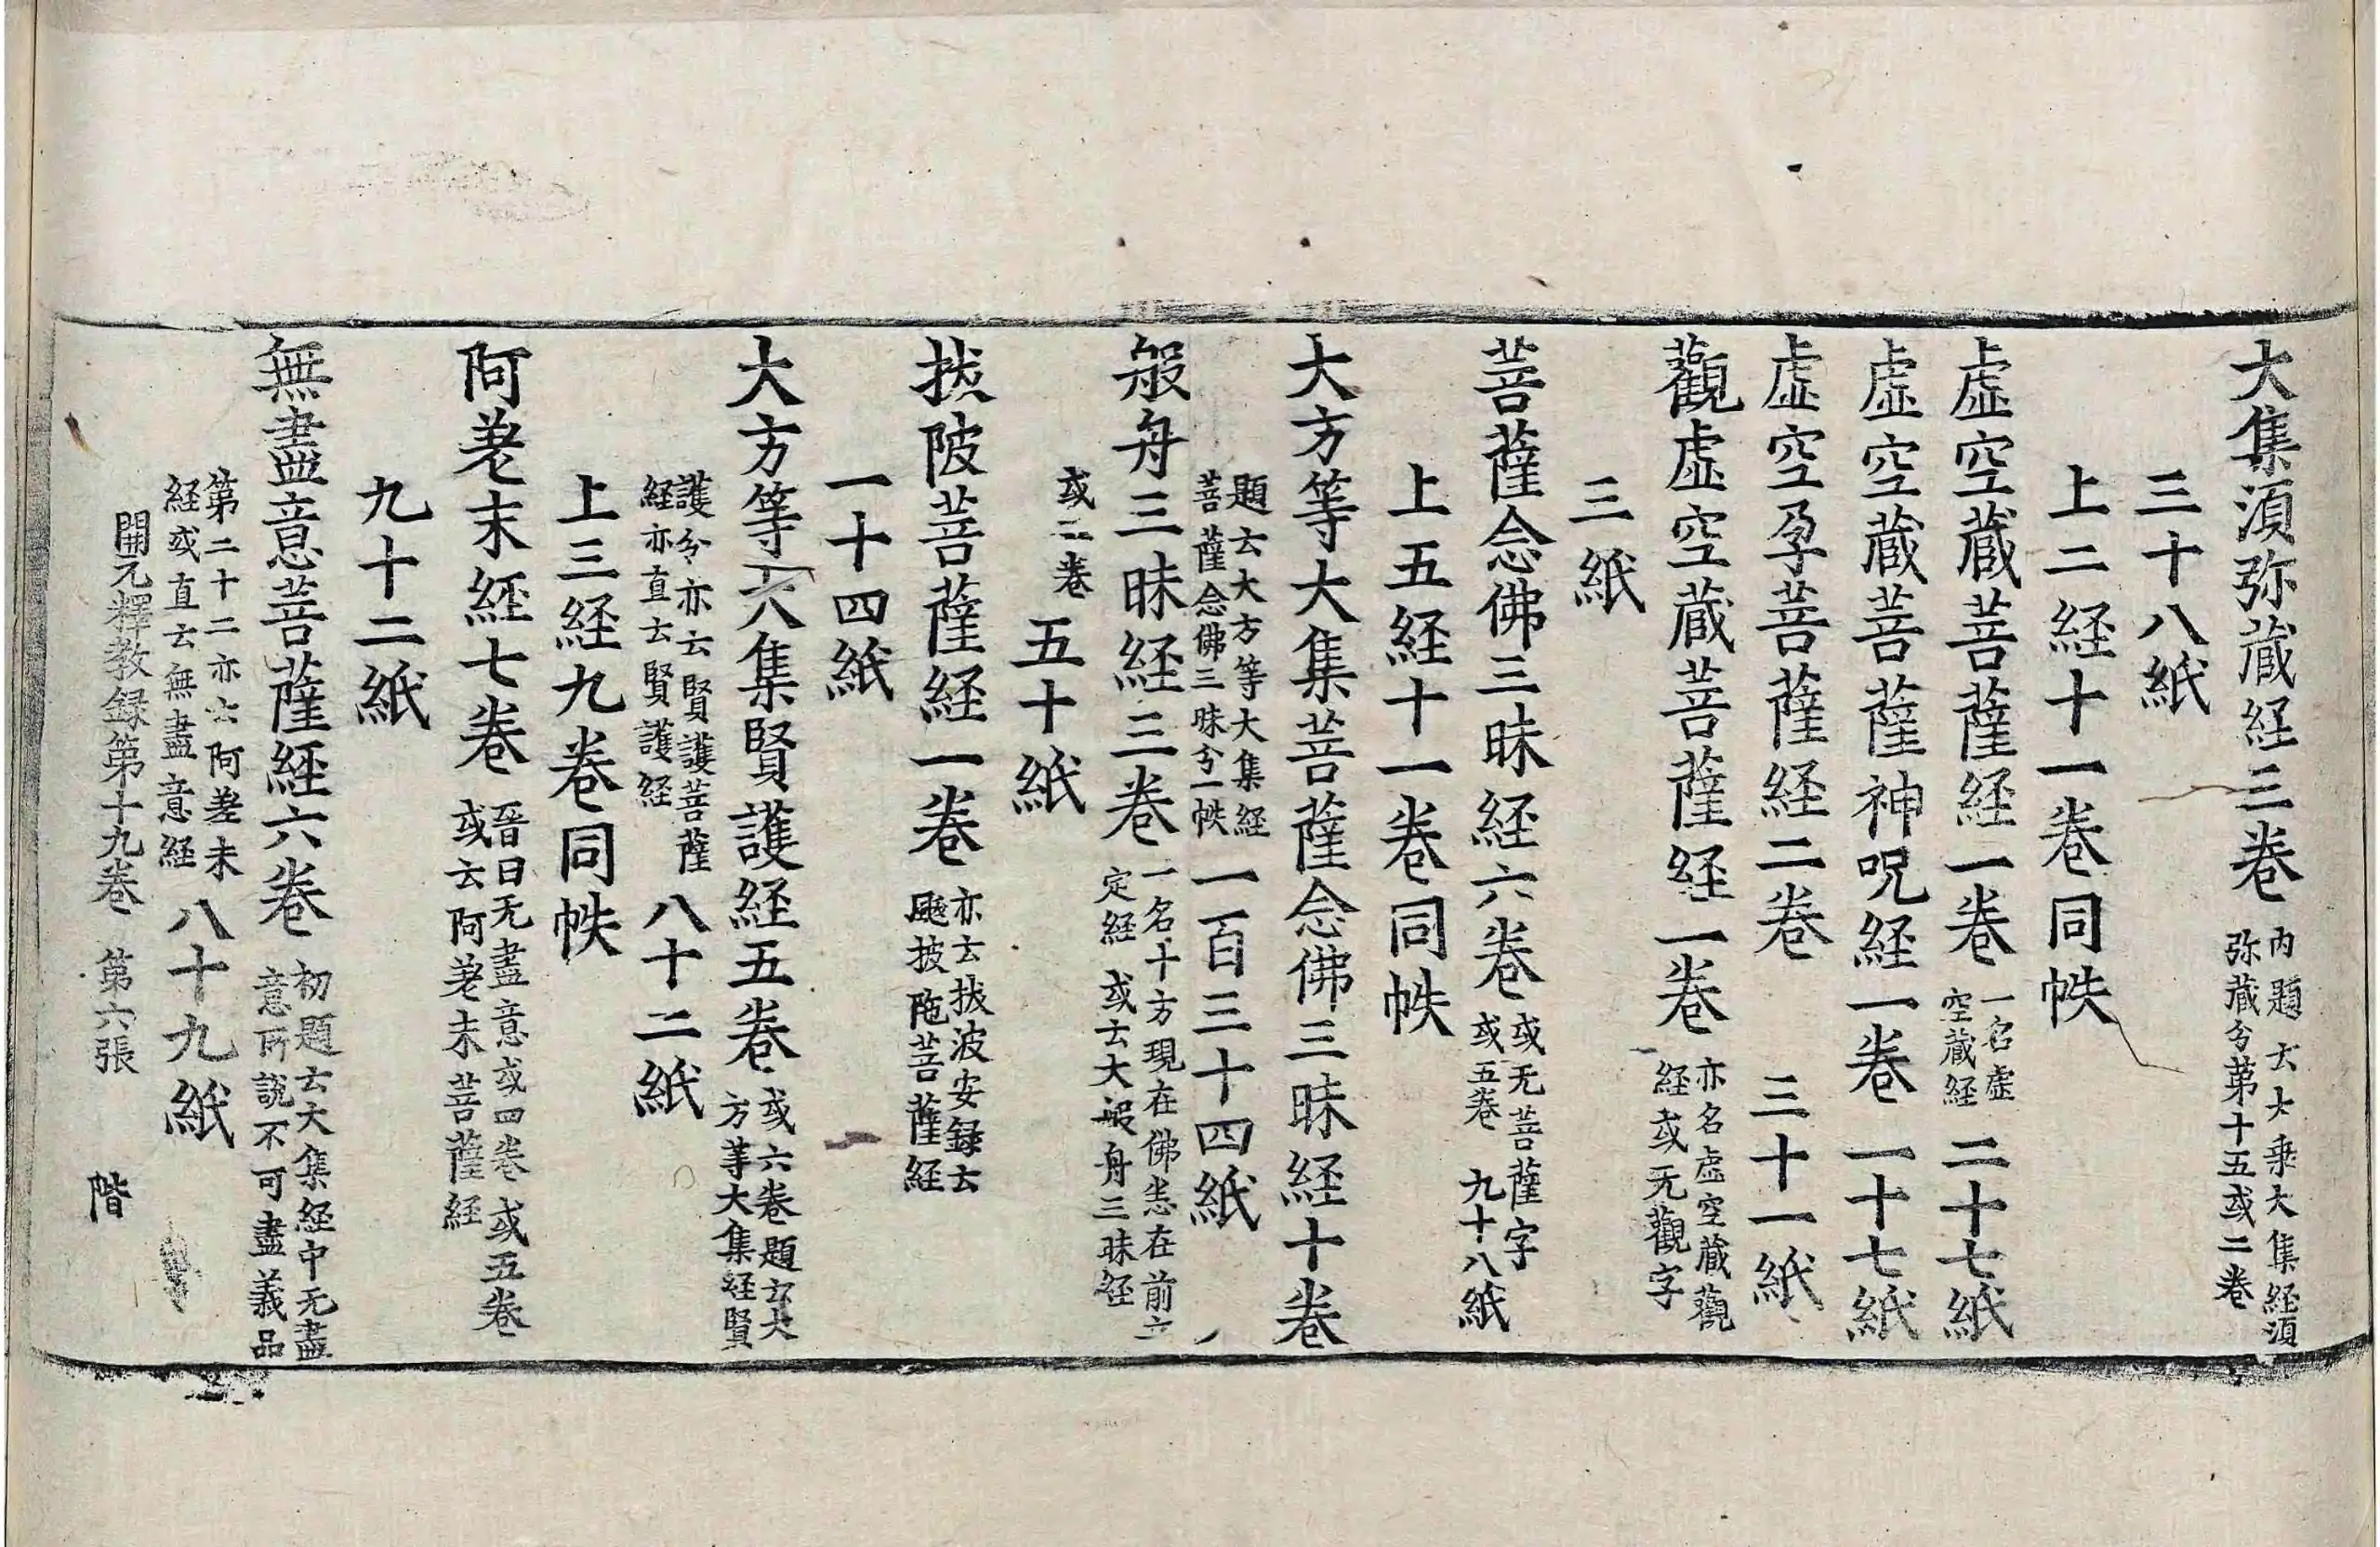 大集湏弥蔵経三巻 内題云大乗大集経湏
弥蔵分第十五或二巻
三十八紙
上二経十一巻同帙
虚空蔵菩薩経一巻 一名虚
空蔵経 二十七紙
虚空蔵菩薩神呪経一巻 一十七紙
虚空孕菩薩経二巻 三十一紙
觀虚空蔵菩薩経一巻 亦名虚空蔵觀
経或无觀字
三紙
菩薩念佛三昧経六巻 或无菩薩字
或五巻 九十八紙
上五経十一巻同帙
大方等大集菩薩念佛三昧経十巻
題云大方等大集経
菩薩念佛三昧分一帙 一百三十四紙
般舟三昧経三巻 一名十方現在佛悉在前立
定経 或云大般舟三昧経
或二巻 五十紙
拔陂菩薩経一巻 亦云拔波安録云
颰披陁菩薩経
一十四紙
大方等大集賢護経五巻 或六巻題云大
方等大集経賢
護分亦云賢護菩薩
経亦直云賢護経 八十二紙
上三経九巻同帙
阿差末経七巻 晉曰无盡意或四巻或五巻
或云阿差末菩薩経
九十二紙
無盡意菩薩経六巻 初題云大集経中无盡
意所說不可盡義品
第二十二亦云阿差末
経或直云無盡意経 八十九紙
開元釋教録第十九巻 第六張 階